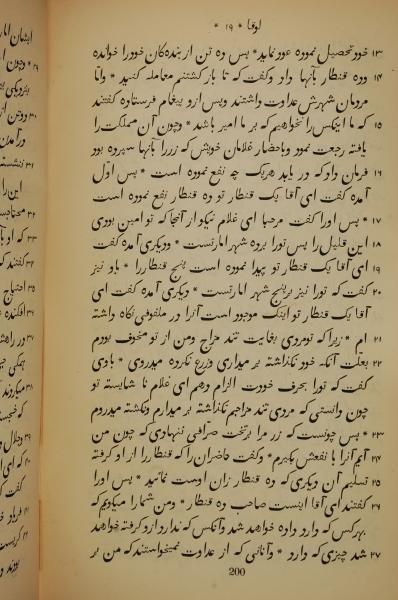 لوقا * ۱۹ *
۱۳ خود تحصیل نموده عود نماید * پس ده تن از بندهکان خود را خوانده
۱۴ وده قنطار بآنها داد وگفت که تا بازگشتنم معامله کنید * واما
مردمان شهرش عداوت داشتند وپس ازو پیغام فرستاده گفتند
۱۵ که ما اینکس را نخواهیم که بر ما امیر باشد * وچون آن مملکت را
یافته رجعت نمود وباحضار غلامان خویش که زر را بآنها سپرده بود
۱۶ فرمان داد که در یابد هریک چه نفع نموده است * پس اول
آمده گفت ای آقا یک قنطار تو ده قنطار نفع نموده است
۱۷ * پس اورا گفت مرحبا ای غلام نیکو از آنجا که تو امین بودی
۱۸ این قلیل را پس تورا برده شهر امارتست * ودیکری آمده گفت
۱۹ ای آقا یک قنطار تو پیدا نموده است پنج قنطار را * باو نیز
۲۰ گفت که تورا نیز بر پنج شهر امارتست * دیکری آمده گفت ای
آقا یک قنطار تو اینک موجود است آنرا در ملفوفی نگاه داشته
۲۱ ام * زیرا که تو مردی بغایت تند مزاج ومن از تو متخوف بودم
۲۲ بعلت آنکه خود نگذاشته بر میداری وزرع نکرده میدروی * بادی
گفت که تورا بحرف خودت الزام دهم ای غلام نا شایسته تو
چون دانستی که مردی تند مزاجم نگذاشته بر میدارم ونکشته میدروم
۲۳ * پس چونست که زر مرا بر تخت صرافی ننهادی که چون من
۲۴ آیم آنرا با نفعش بگیرم * وگفت حاضران را که قنطار را از او گرفته
۲۵ تسلیم آن دیکری که ده قنطار زان اوست نمائید * پس اورا
۲۶ گفتند ای آقا اینست صاحب ده قنطار * ومن شمارا میگویم که
بهرکس که دارد داده خواهد شد وآنکس که ندارد ازو گرفته خواهد
۲۷ شد چیزی که دارد * وآنانی که از عداوت نمیخواستند که من بر
200